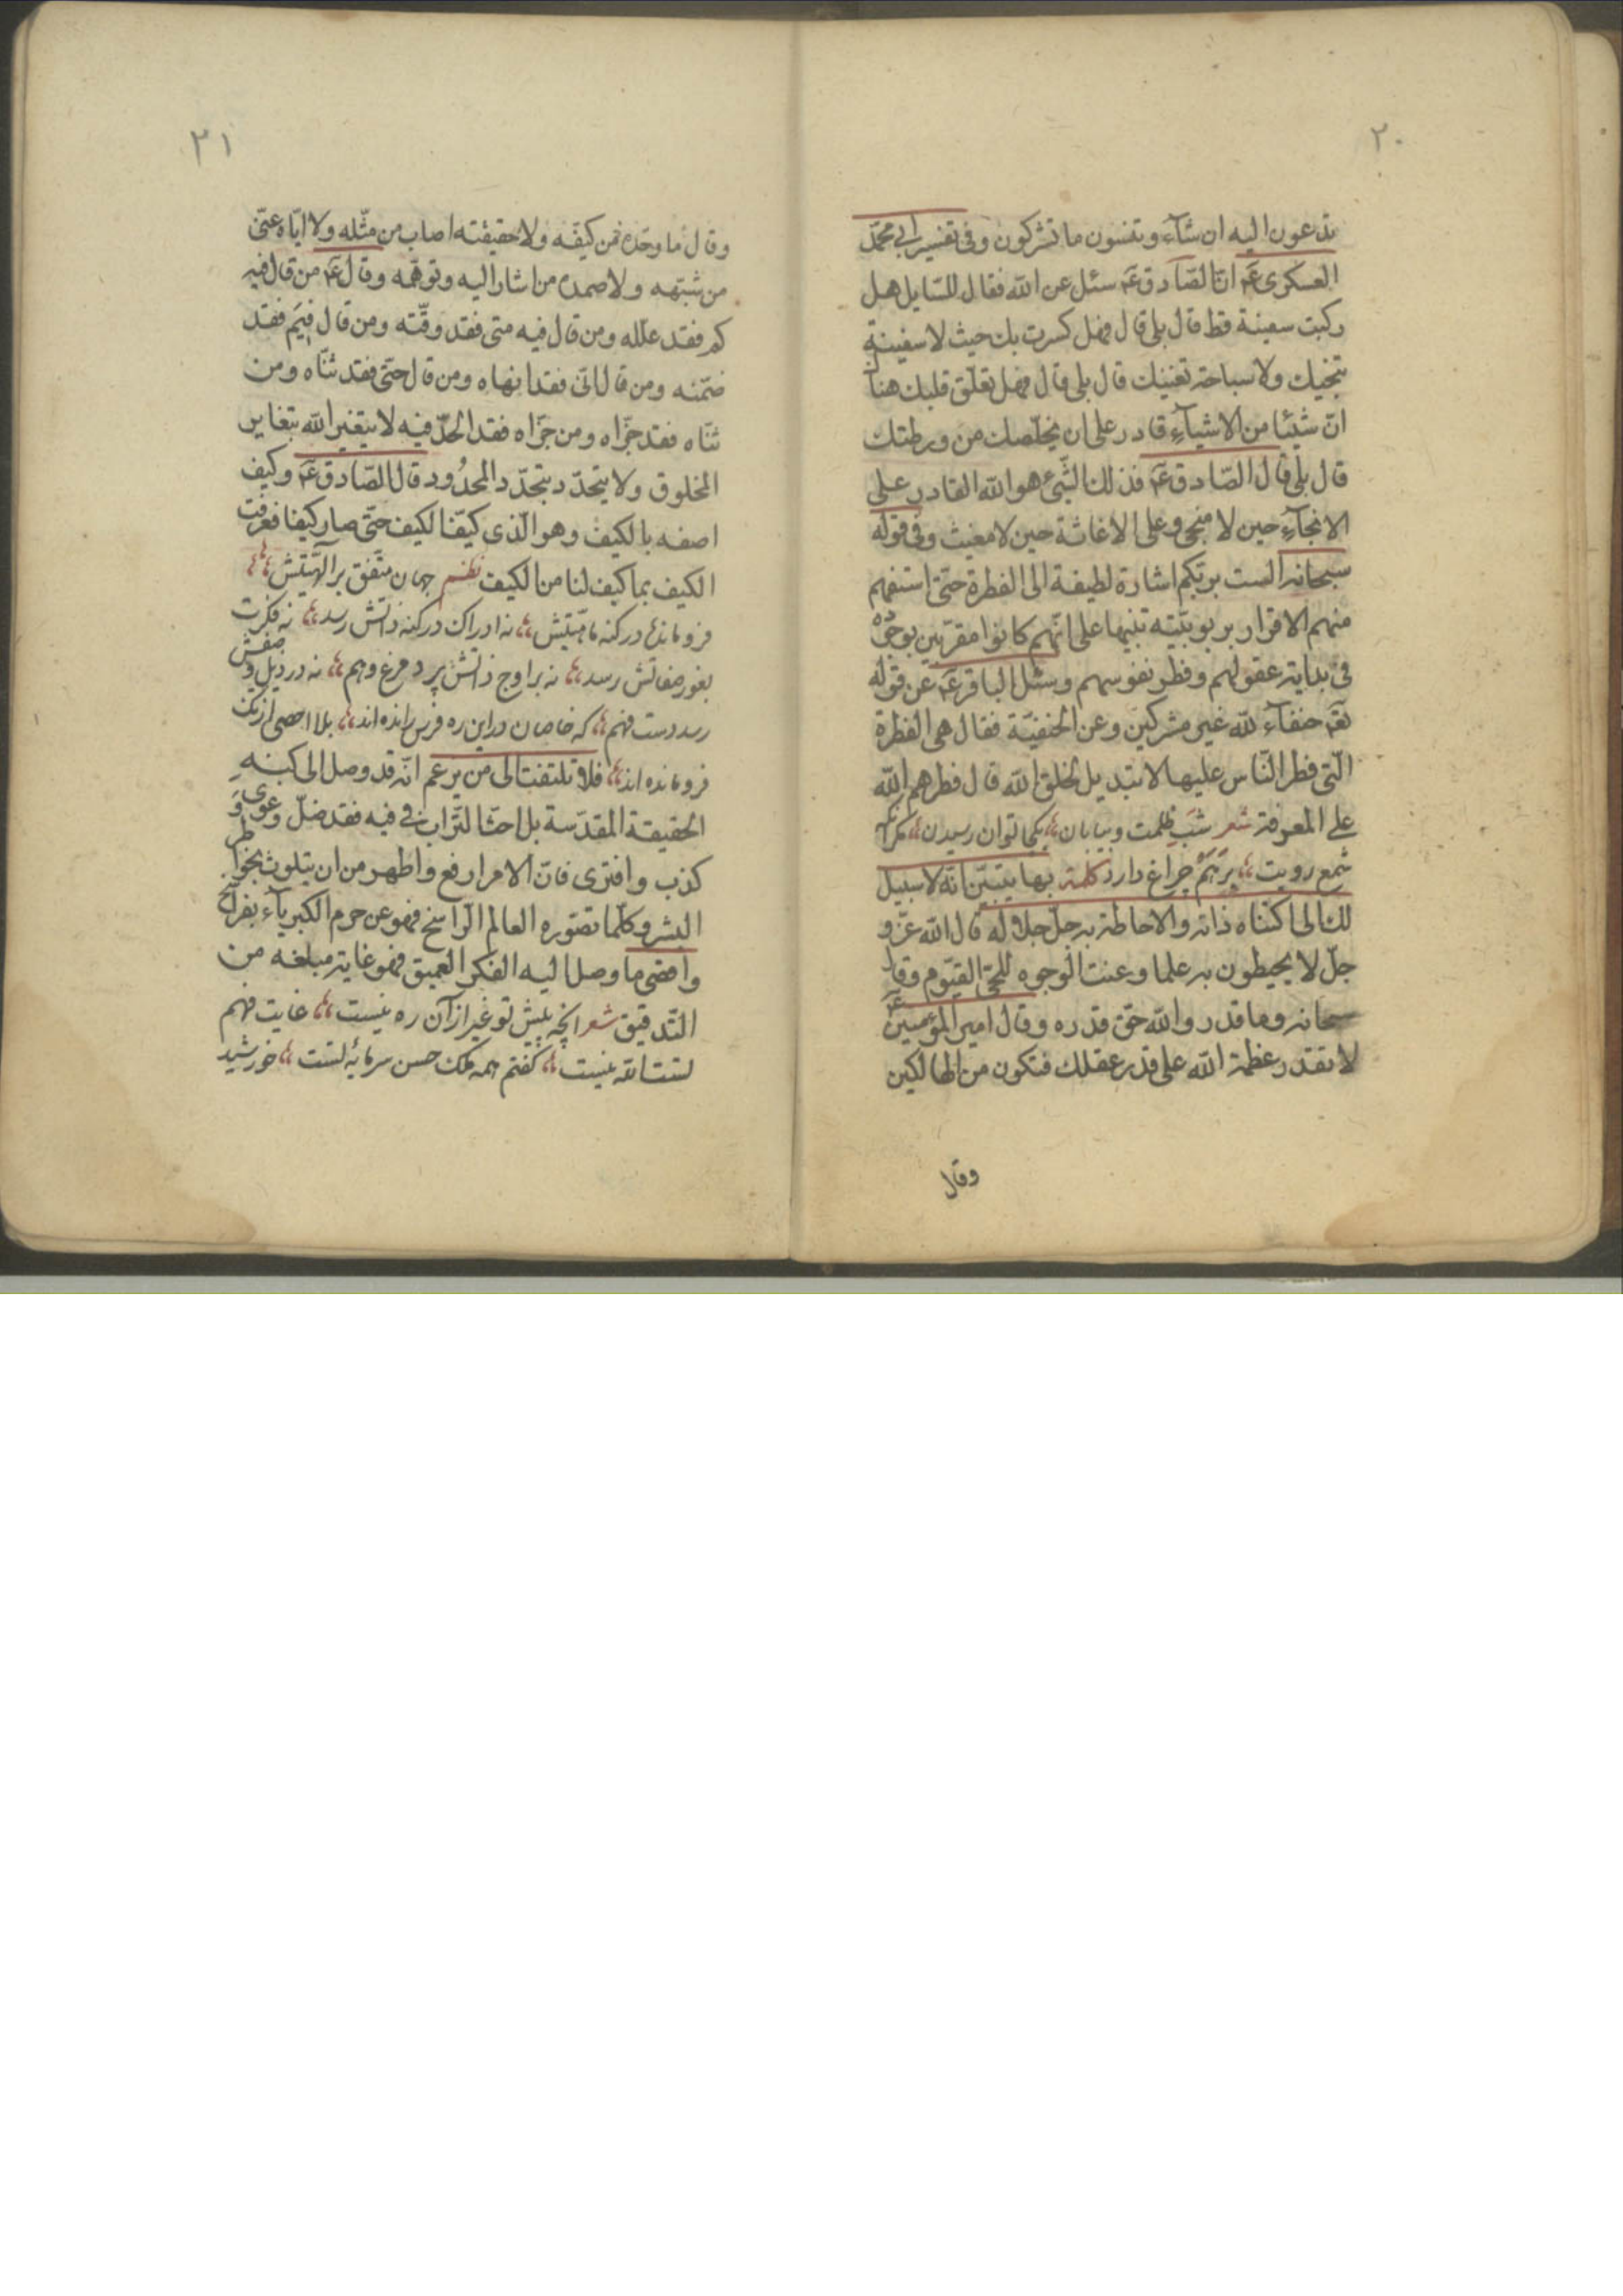 ٢٠
تدعون اليه ان شآء وتنسون ما تشركون وفى تفسير ابى محمّد
العسكرى عۤ انّ الصّادق عۤ سئل عن الله فقال للسّايل هل
ركبت سفينة قط قال بلى قال فهل كسرت بك حيث لا سفينة
تنجيك ولا سباحة تغنيك قال بلى قال فهل تعلّق قلبك هنالك
انّ شيئا من الاشيآء قادر على ان يخلّصك من ورطتك
قال بلى قال الصّادق عۤ فذلك الشّئ هو الله القادر على
الانجآء حين لا منجى وعلى الاغاثة حين لا مغيث وفى قوله
سبحانه الست بربّكم اشارة لطيفة الى الفطرة حتّى استفهم
منهم الاقرار بربوبيّته تنبيها على انّهم كانوا مقرّبين بوجوده
فى بداية عقولهم وفطر نفوسهم وسئل الباقر عۤ عن قوله
تعۤ حنفآء لله غير مشركين وعن الحنفيّة فقال هى الفطرة
الّتى فطر النّاس عليها لا تبديل لخلق الله قال فطرهم الله
على المعرفة شعر شب ظلمت وبيابان بكجا توان رسيدن مكر آنكه
شمع رويت برهم چراغ دارد كلمة بها يتبيّن انّه لا سبيل
لك الى اكتناه ذاته والاحاطة به جلّ جلاله قال الله عزّ و
جلّ لا يحيطون به علما وعنت الوجوه للحىّ القيّوم وقال
سبحانه وما قدروا الله حقّ قدره وقال امير المؤمنين عۤ
لا تقدر عظمة الله على قدر عقلك فتكون من الهالكين
وقال
٢١
وقال ما وحّده من كيّفه ولا حقيقته اصاب من مثّله ولا ايّاه عنى
من شبّهه ولا صمده من اشار اليه وتوهّمه وقال عۤ من قال فيه
لم فقد علّله ومن قال فيه متى فقد وقّته ومن قال فيم فقد
ضمّنه ومن قال الىَ فقد انهاه ومن قال حتّى فقد ثنّاه ومن
ثنّاه فقد جزّاه ومن جزّاه فقد الحد فيه لا يتغير الله بتغاير
المخلوق ولا يتحدّد بتحدّد المحدُود قال الصّادق عۤ وكيف
اصفه بالكيف وهو الّذى كيّف الكيف حتّى صار كيفا فعرفت
الكيف بما كيف لنا من الكيف نظم جهان متّفق بر الهيّتش
فرومانده در كنه ماهيّتش نه ادراك در كنه ذاتش رسد نه فكرت
بغور صفاتش رسد نه بر اوج ذاتش پرد مرغ وهم نه در ذيل وصفش
رسد دست فهم كه خاصان در اين ره فرس رانده اند بلا احصى از تك
فرومانده اند فلا تلتفت الى من يزعم انّه قد وصل الى كنه
الحقيقة المقدّسة بل احث التّراب فى فيه فقد ضلّ وغوى و
كذب وافترى فانّ الامر ارفع واطهر من ان يتلوث بخواطر
البشر وكلّما تصّوره العالم الرّاسخ فهو عن حرم الكبريآء بفراسخ
واقصى ما وصل اليه الفكر العميق فهو غاية مبلغه من
التّدقيق شعر آنچه پيش تو غير از آن ره نيست غايت فهم
تست الله نيست گفتم همه ملك حسن سرمايه تست خورشيد